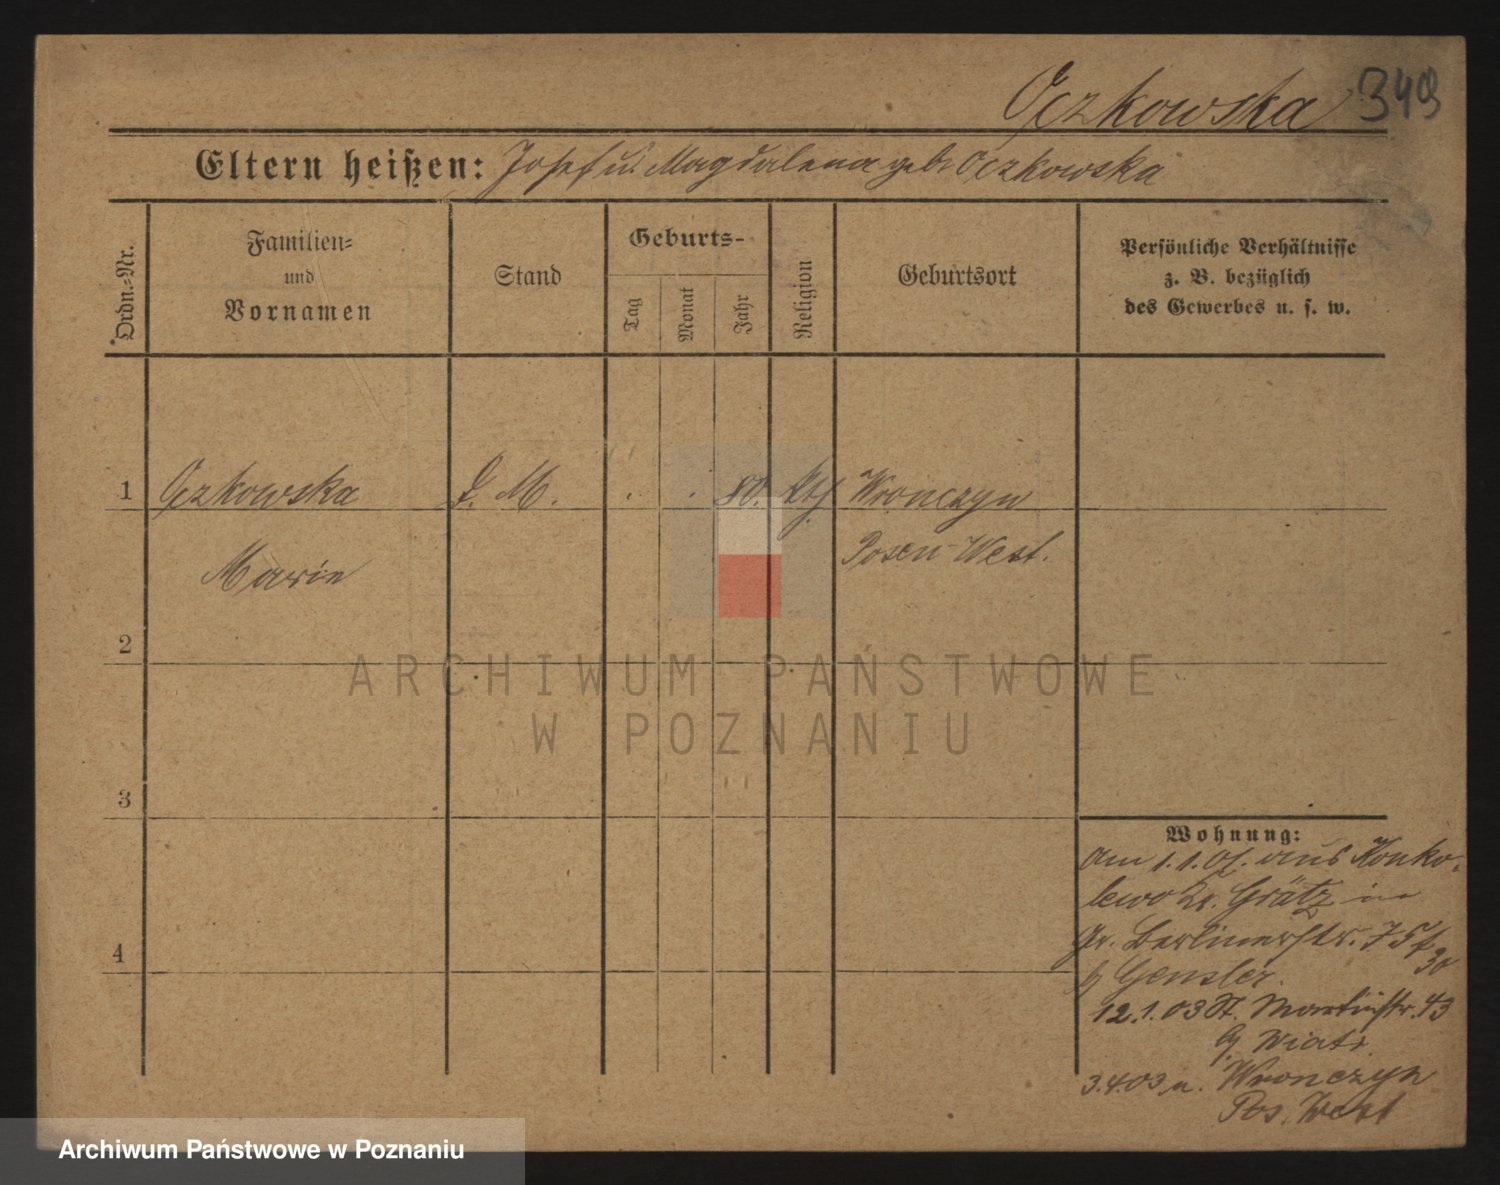 Oczkowska 349
Eltern heißen: Josef u. Magdalena geb. Oczkowska
Ordn.-Nr.
Familien-
und
Vornamen
Stand
Geburts-
Tag
Monat
Jahr
Religion
Geburtsort
Persönliche Verhältnisse
z. B. bezüglich
des Gewerbes u. s. w.
1 Oczkowska D. M. . . 80. Kth Wronczyn
Marie Posen-West.
2
ARCHIWUM PAŃSTWOWE
W POZNANIU
3
Wohnung:
am 1.1.01. aus Konko-
lewo Kr. Grätz in
Gr. Berlinerstr. 75
b/ Gensler.
4
12.1.03 St. Martinstr. 43
b/ Wiatr.
3.4.03. n. Wronczyn
Pos. West
Archiwum Państwowe w Poznaniu